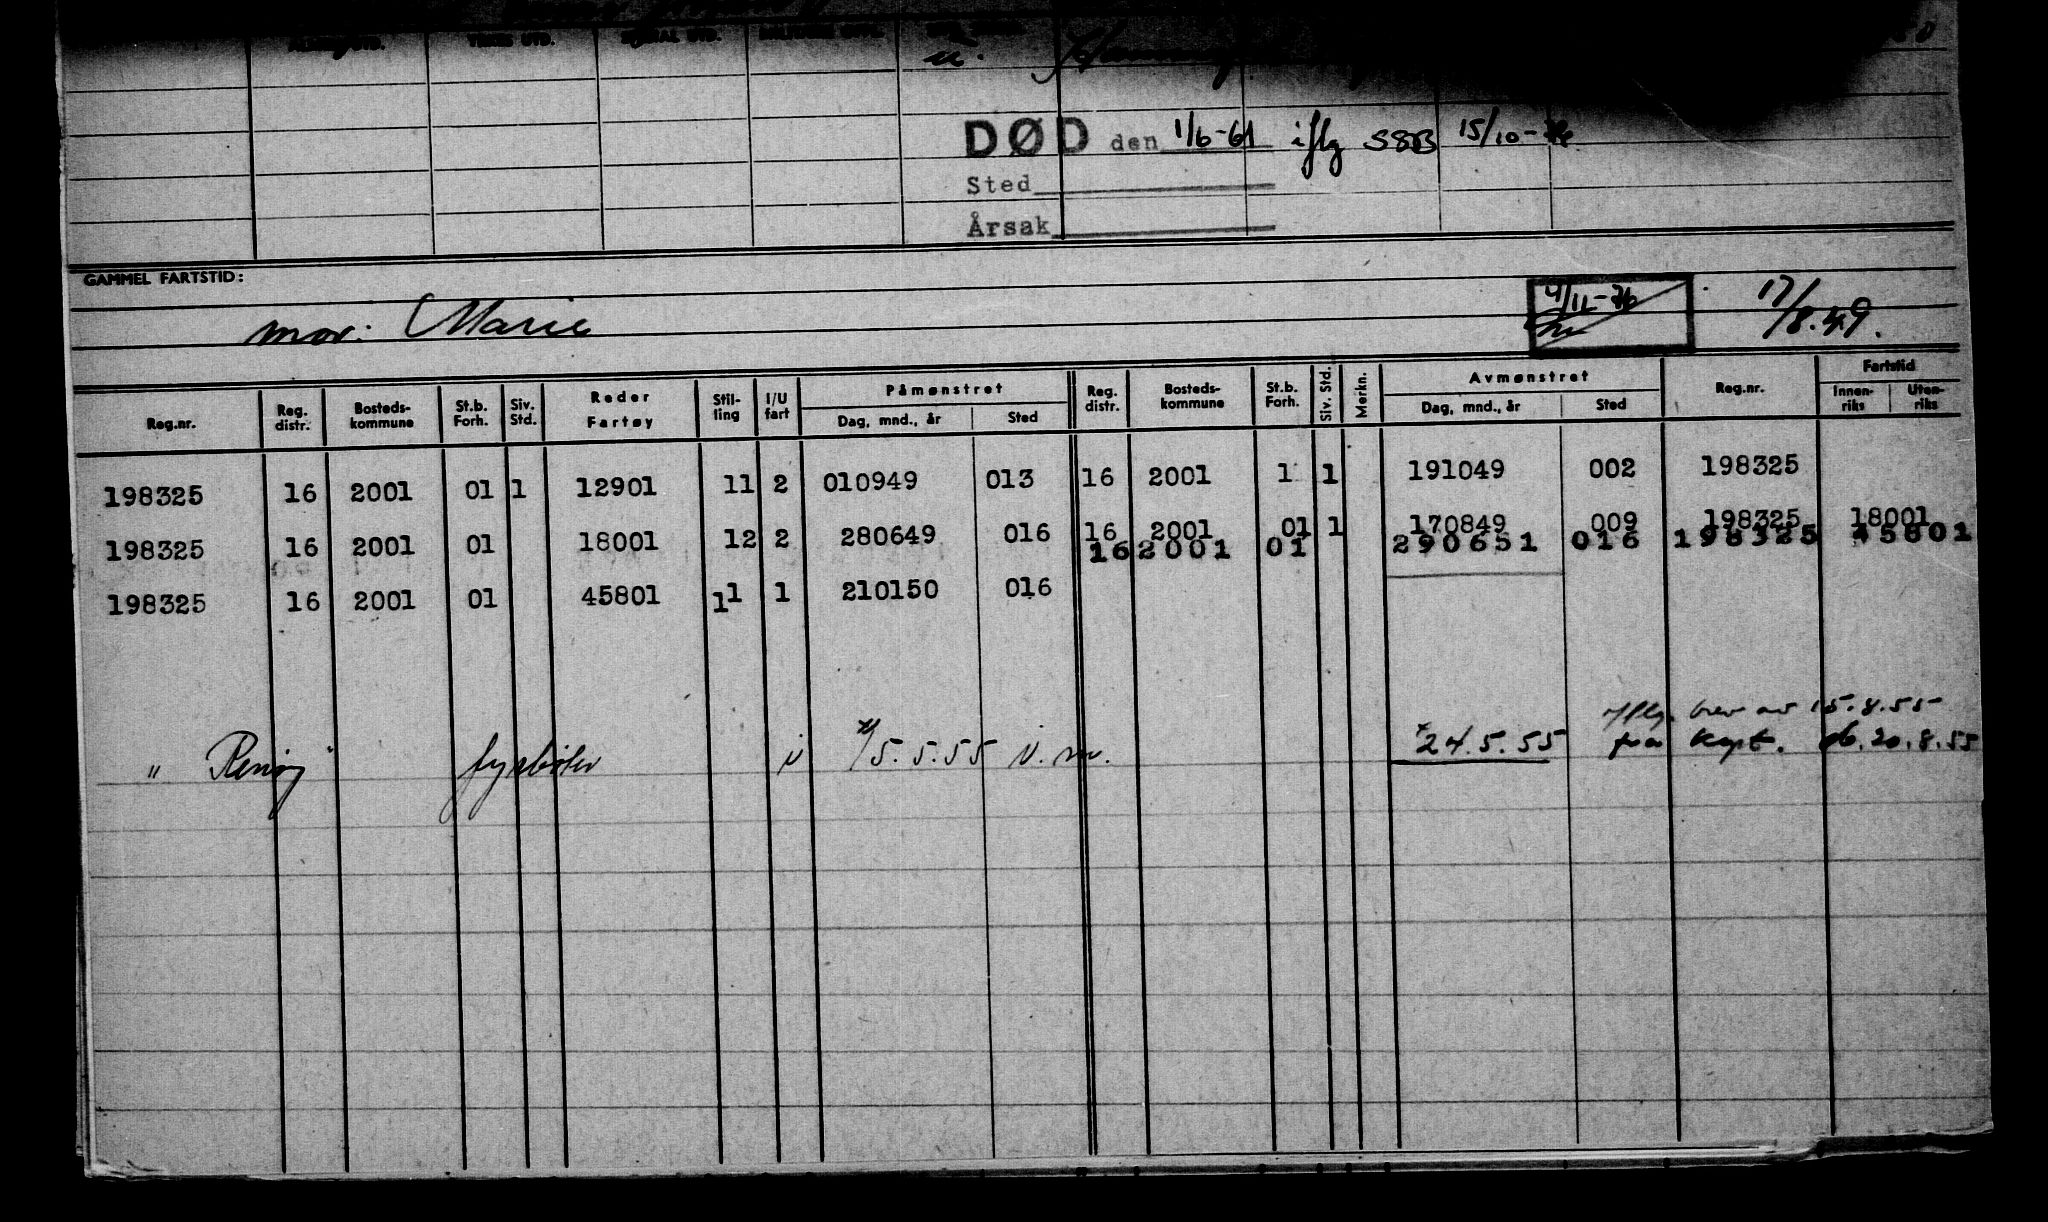 ALMEN UTD. TEKN. UTD. SPESIAL UTD.
u.
DØD den 1/6-61 iflg SSB 15/10-76
Sted
Årsak
GAMMEL FARTSTID:
mor: Marie
4/11-76 17/8.49.
Reg.nr. Reg. distr. Bosteds-kommune St.b. Forh. Siv. Std. Reder Fartøy Stil-ling I/U fart Påmønstret Dag, mnd., år Sted Reg. distr. Bosteds-kommune St.b. Forh. Siv. Std. Merkn. Avmønstret Dag, mnd., år Sted Reg.nr. Fartstid Innen-riks Uten-riks
198325 16 2001 01 1 12901 11 2 010949 013 16 2001 1 1 191049 002 198325
198325 16 2001 01 18001 12 2 280649 016 16 2001 01 1 170849 009 198325 18001
16 2001 01 290651 016 198325 45801
198325 16 2001 01 45801 11 1 210150 016
iflg. brev av 15.8.55
" Renøy " fyrbøter 5.5.55 24.5.55 fra Kapt. 20.8.55